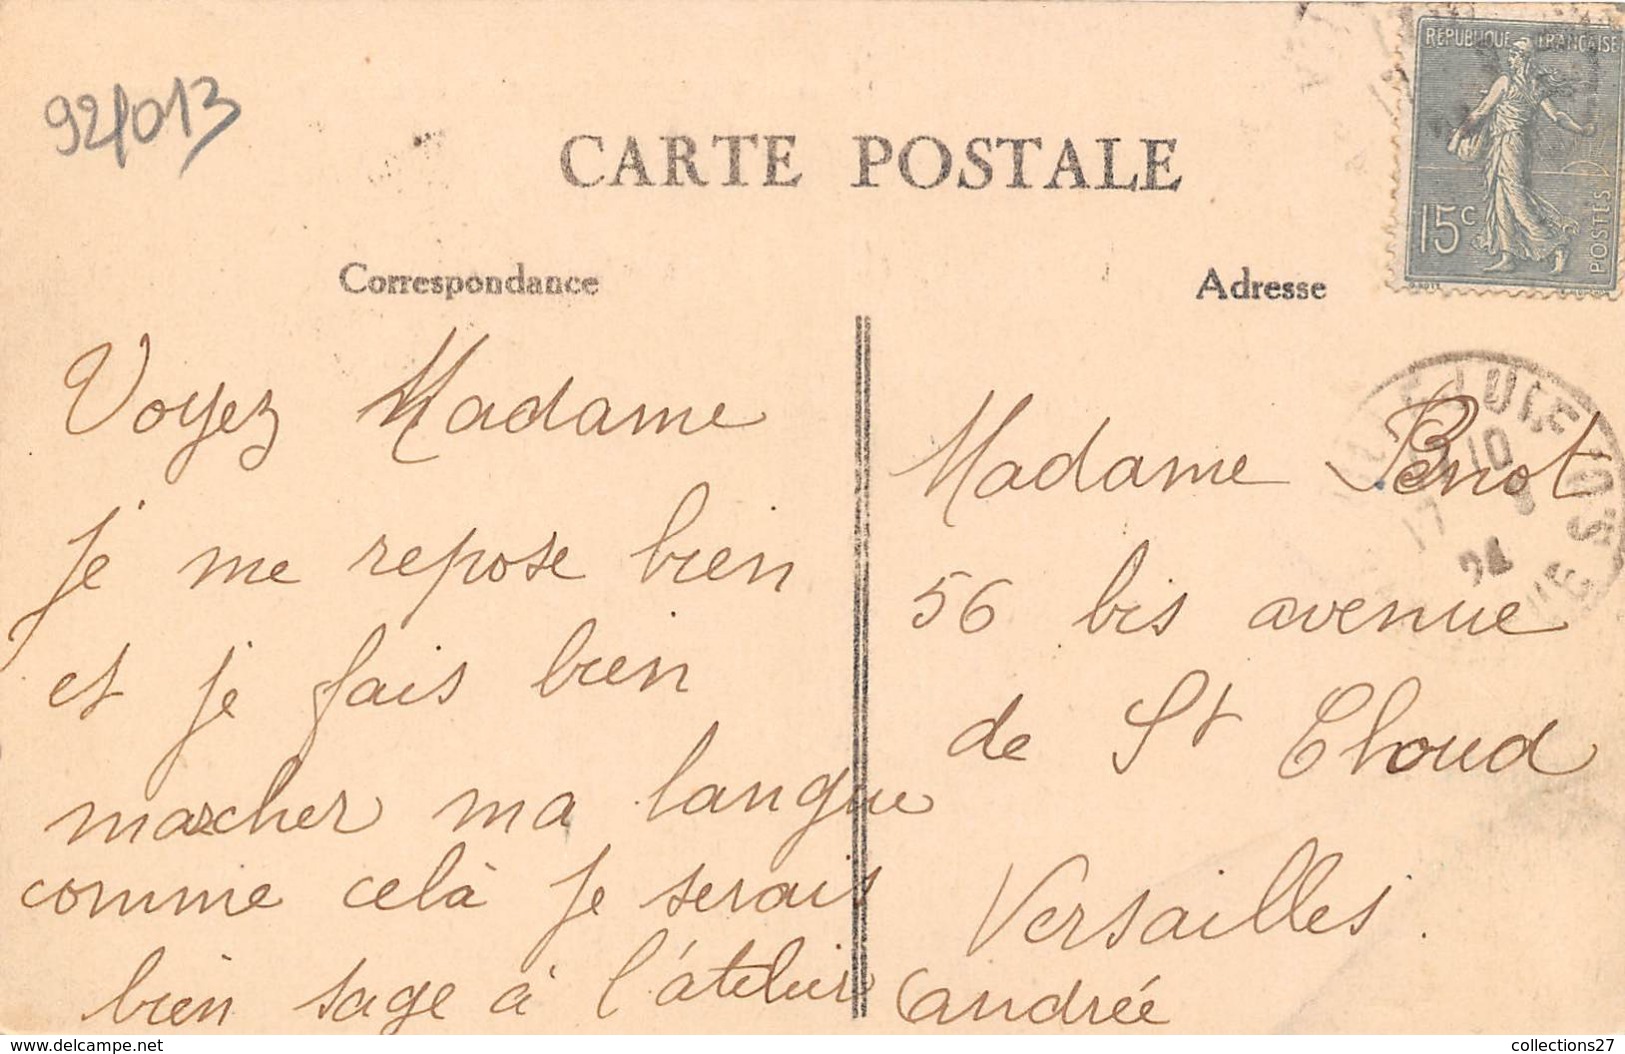 92/013
CARTE POSTALE
REPUBLIQUE FRANCAISE
15c
POSTES
Correspondance
Adresse
Voyez Madame
je me repose bien
et je fais bien
marcher ma langue
comme celà je serais
bien sage à l'atelier
andrée
Madame Benot
56 bis avenue
de St Cloud
Versailles.
17
24
collections27